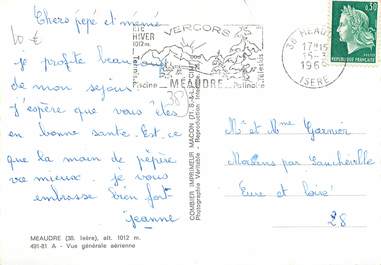 10 €
Chers pépé et mémé
je profite beaucoup
de mon séjour
J'espère que vous êtes
en bonne santé. Est.ce
que la main de pépère
va mieux. je vous
embrasse bien fort
jeanne
MEAUDRE (38. Isère), alt. 1012 m.
491-81 A - Vue générale aérienne
ETE
HIVER
1012 m.
VERCORS
Piscine MEAUDRE Patinoire
38
COMBIER IMPRIMEUR MACON (71 S.-&-L.) CIM
Photographie Véritable - Reproduction Inter
38 MEAUDRE
17H15
196
ISERE
0,30
REPUBLIQUE FRANÇAISE
Mr et Mme Garnier
par Lancheville
Eure et Loire
28